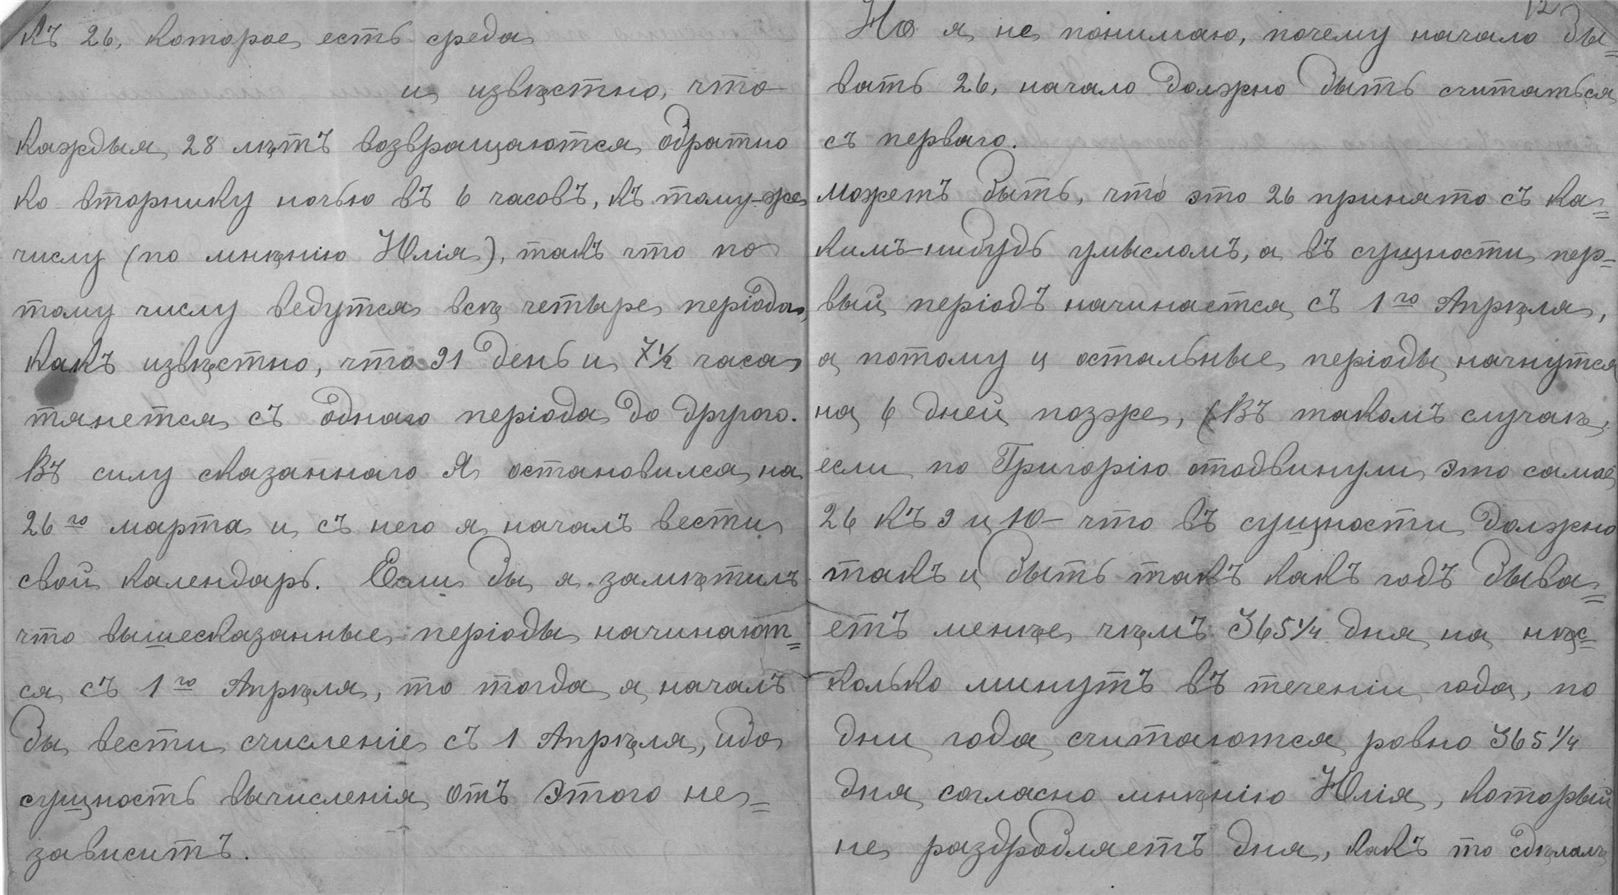 къ 26, которое есть среда
и извѣстно, что
каждыя 28 лѣтъ возвращаются обратно
ко вторнику ночью въ 6 часовъ, къ тому-же
числу (по мнѣнію Юлія), такъ что по
тому числу ведутся всѣ четыре періода,
какъ извѣстно, что 91 день и 7½ часа
тянется съ однаго періода до другого.
Въ силу сказаннаго Я остановился на
26го марта и съ него я началъ вести
свой календарь. Если бы я замѣтилъ
что вышесказанные періоды начинают=
ся съ 1го Апрѣля, то тогда я началъ
бы вести счисленіе съ 1 Апрѣля, ибо
сущность вычисленія отъ этого не=
зависитъ.
12
Но я не понимаю, почему начало бы=
вать 26, начало должно быть считаться
съ перваго.
может быть, что это 26 принято съ ка=
кимъ-нибудь умысломъ, а въ сущности пер=
вый періодъ начинается съ 1го Апрѣля,
а потому и остальные періоды начнутся
на 6 дней позже, (Въ такомъ случаѣ,
если по Григорію отодвинули это самое
26 къ 9 и 10 – что въ сущности должно
такъ и быть такъ какъ годъ быва=
етъ менѣе чѣмъ 365¼ дня на нѣс=
колько минутъ въ теченіи года, но
дни года считаются ровно 365¼
дня, согласно мнѣнію Юлія, который
не раздробляетъ дня, какъ то сдѣлалъ